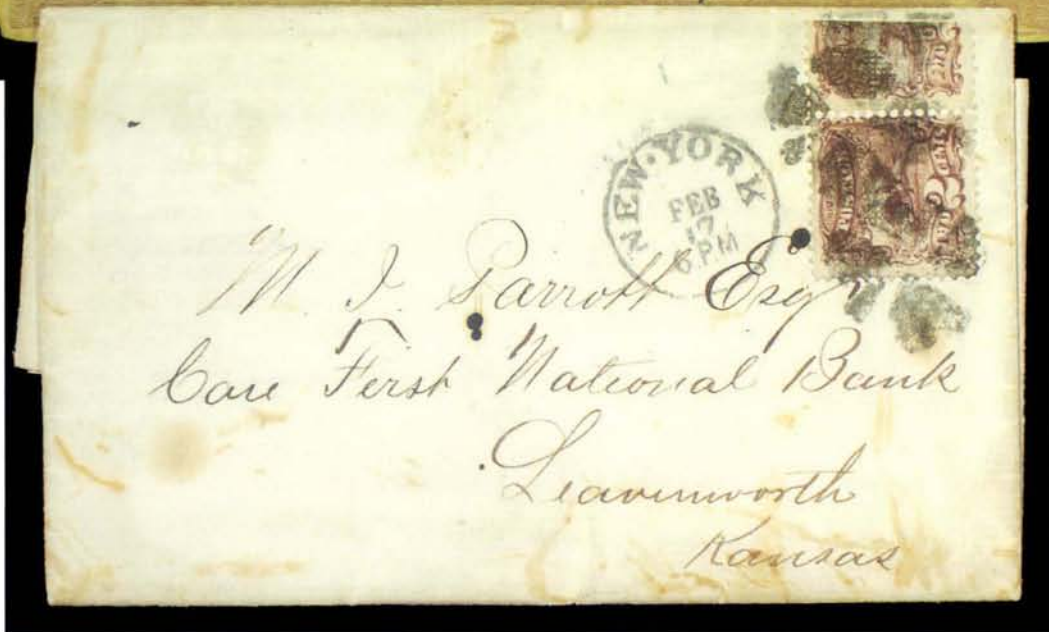 NEW·YORK
FEB
17
6.P.M
M. J. Parrott Esqr
Care First National Bank
Leavenworth
Kansas